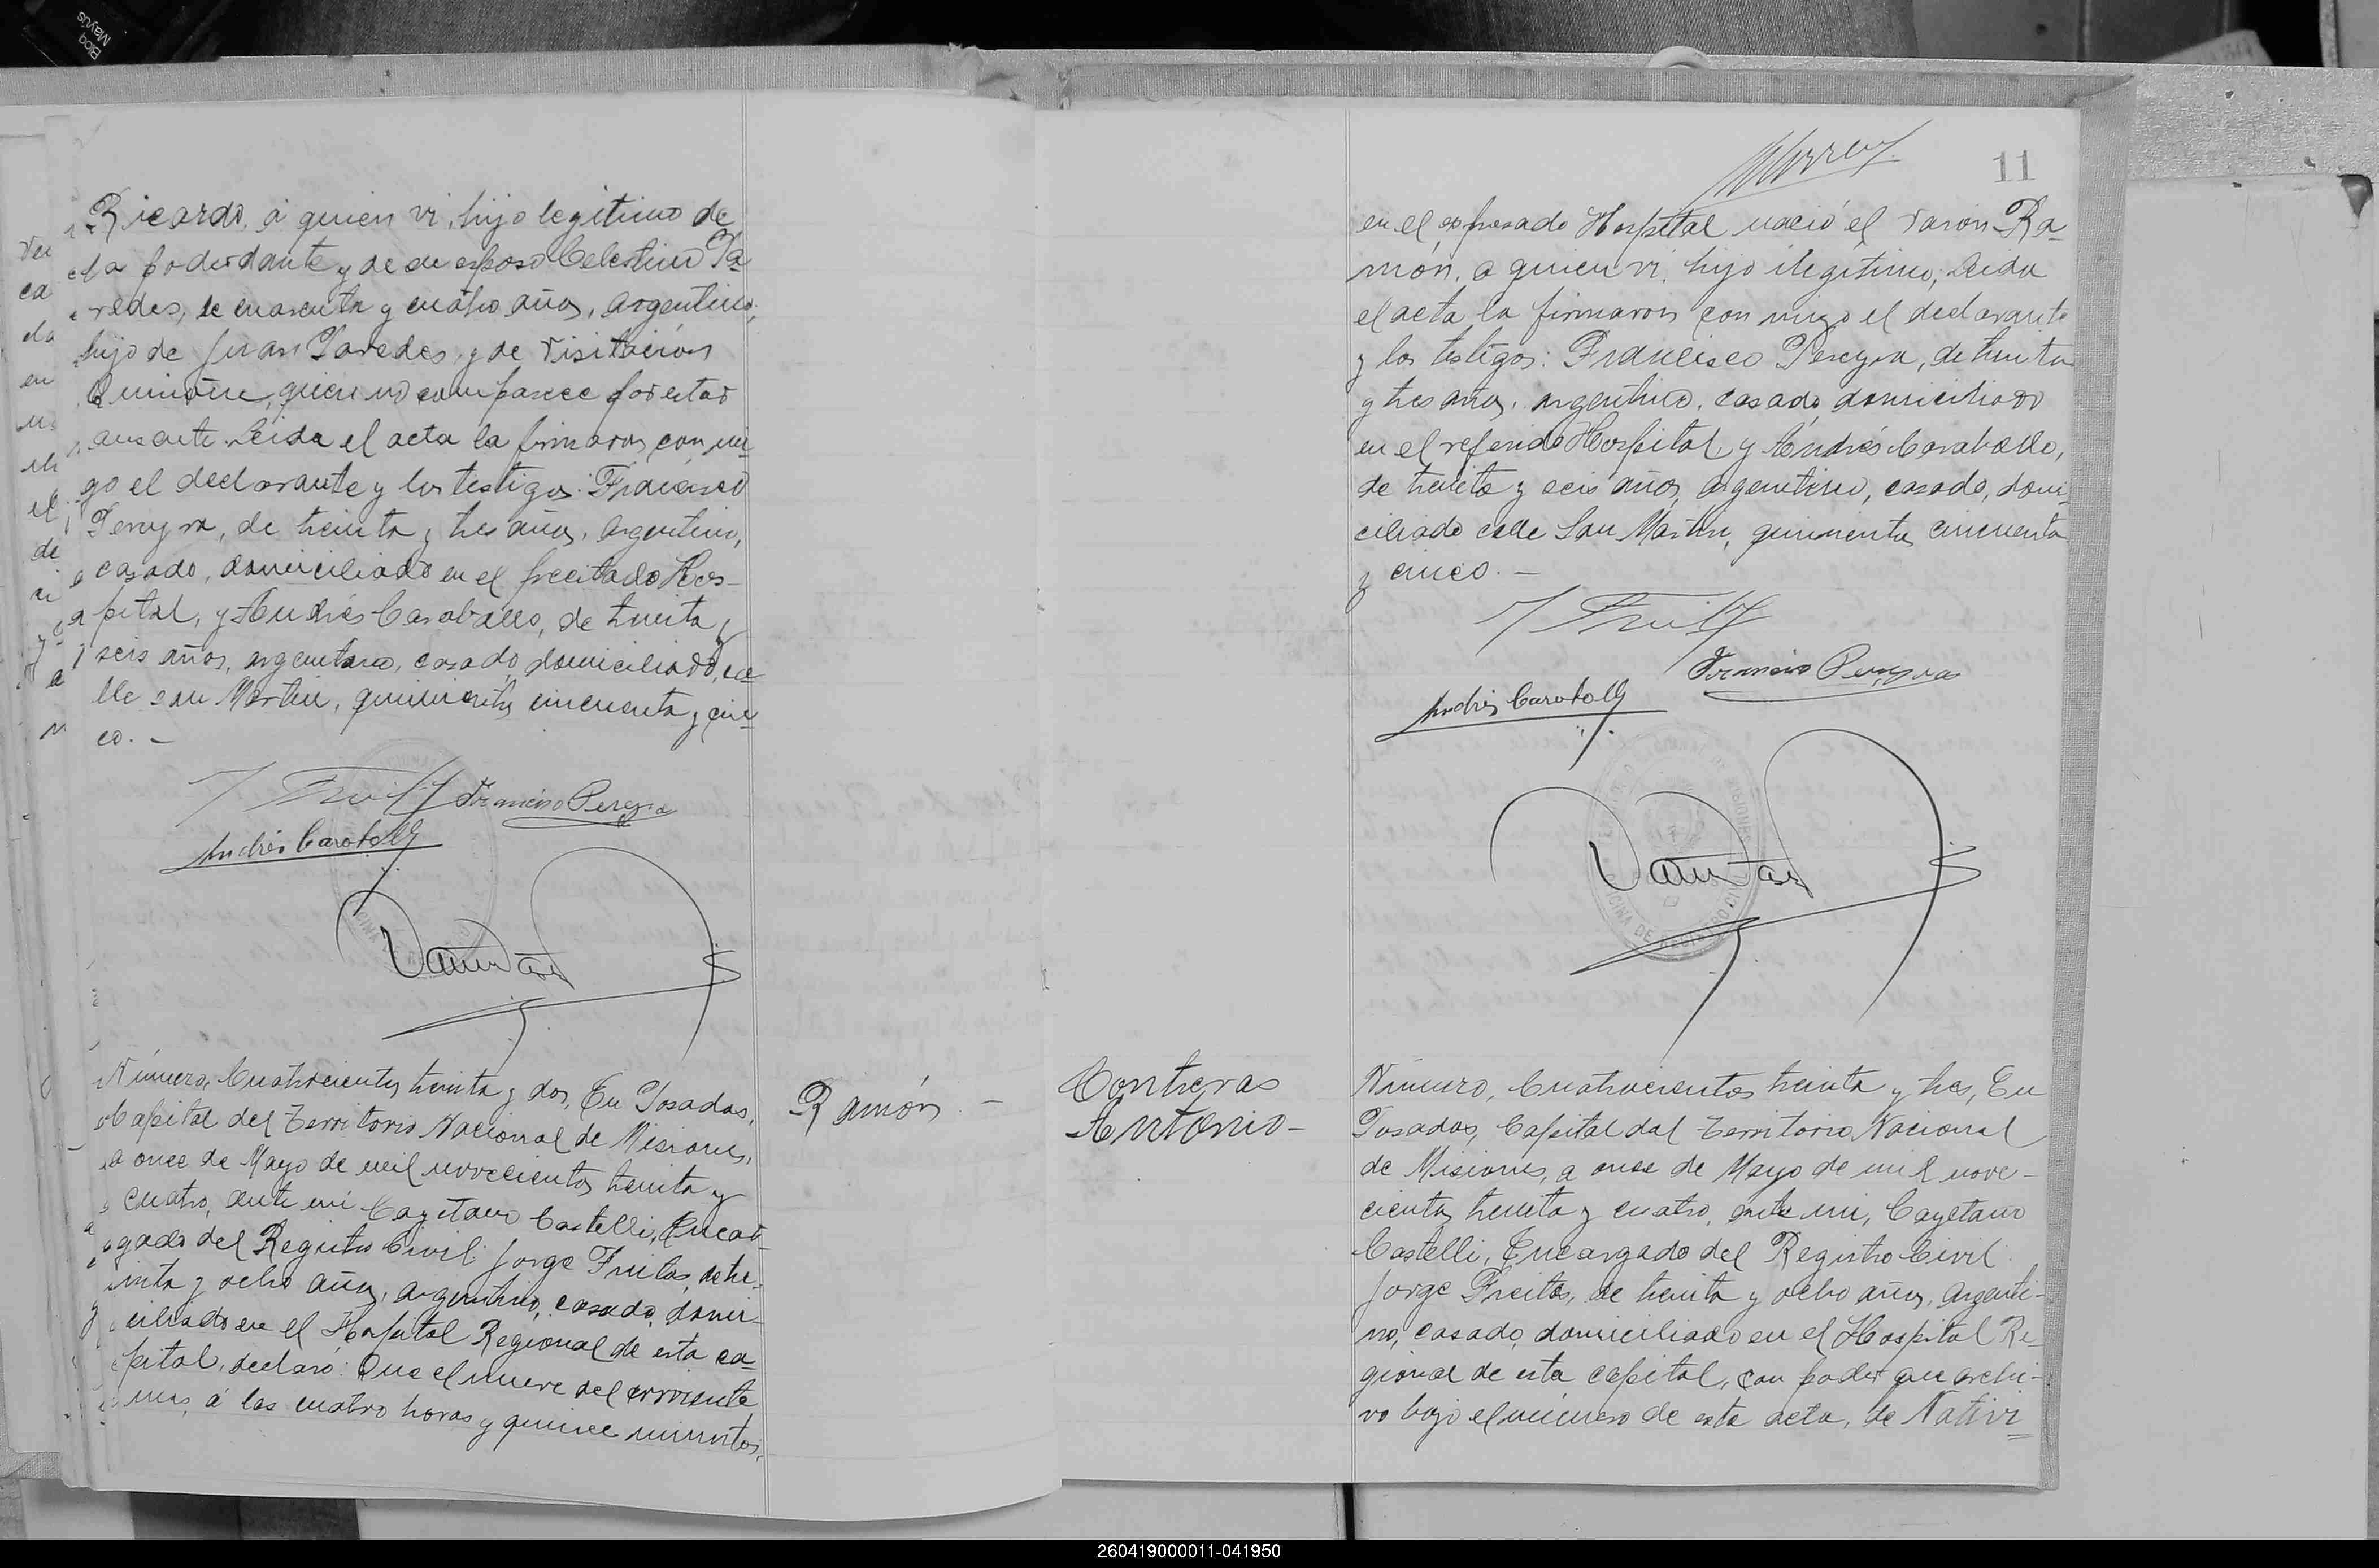 Bloq
Mayús
Ricardo, á quien vi, hijo legítimo de
la poderdante y de su esposo Celestino Pa=
redes, de cuarenta y cuatro años, argentino,
hijo de Juan Paredes y de Visitación
quien no comparece por estar
ausente. Leida el acta la firmaron con mi=
go el declarante y los testigos: Francisco
Pereyra, de treinta y tres años, argentino,
casado, domiciliado en el precitado Hos-
pital, y Andrés Caraballo, de treinta y
seis años, argentino, casado, domiciliado, ca=
lle San Martin, quinientos cincuenta y cin=
co. -
Francisco Pereyra
Andrés Caraballo
Número, Cuatrocientos treinta y dos, En Posadas,
Capital del Territorio Nacional de Misiones,
a once de Mayo de mil novecientos treinta y
cuatro, ante mi Cayetano Castelli, Encar=
gado del Registro Civil: Jorge Freitas, de tre-
inta y ocho años, argentino, casado, domi-
ciliado en el Hospital Regional de esta ca=
pital, declaró: Que el nueve del corriente
mes, á las cuatro horas y quince minutos,
Ramón. -
11
en el expresado Hospital nació el varon Ra=
món, a quien vi, hijo ilegítimo; Leida
el acta la firmaron con migo el declarante
y los testigos: Francisco Pereyra, de treinta
y tres años, argentino, casado, domiciliado
en el referido Hospital, y Andrés Caraballo,
de treinta y seis años, argentino, casado, domi=
ciliado calle San Martin, quinientos cincuenta
y cinco. -
Francisco Pereyra
Andrés Caraballo
OFICINA DE REGISTRO CIVIL
Contreras
Antonio -
Número, Cuatrocientos treinta y tres, En
Posadas, Capital del Territorio Nacional
de Misiones, a once de Mayo de mil nove-
cientos treinta y cuatro, ante mi, Cayetano
Castelli, Encargado del Registro Civil:
Jorge Freitas, de treinta y ocho años, argenti-
no, casado, domiciliado en el Hospital Re=
gional de esta capital, con poder que archi-
vo bajo el número de esta acta, de Nativi=
260419000011-041950